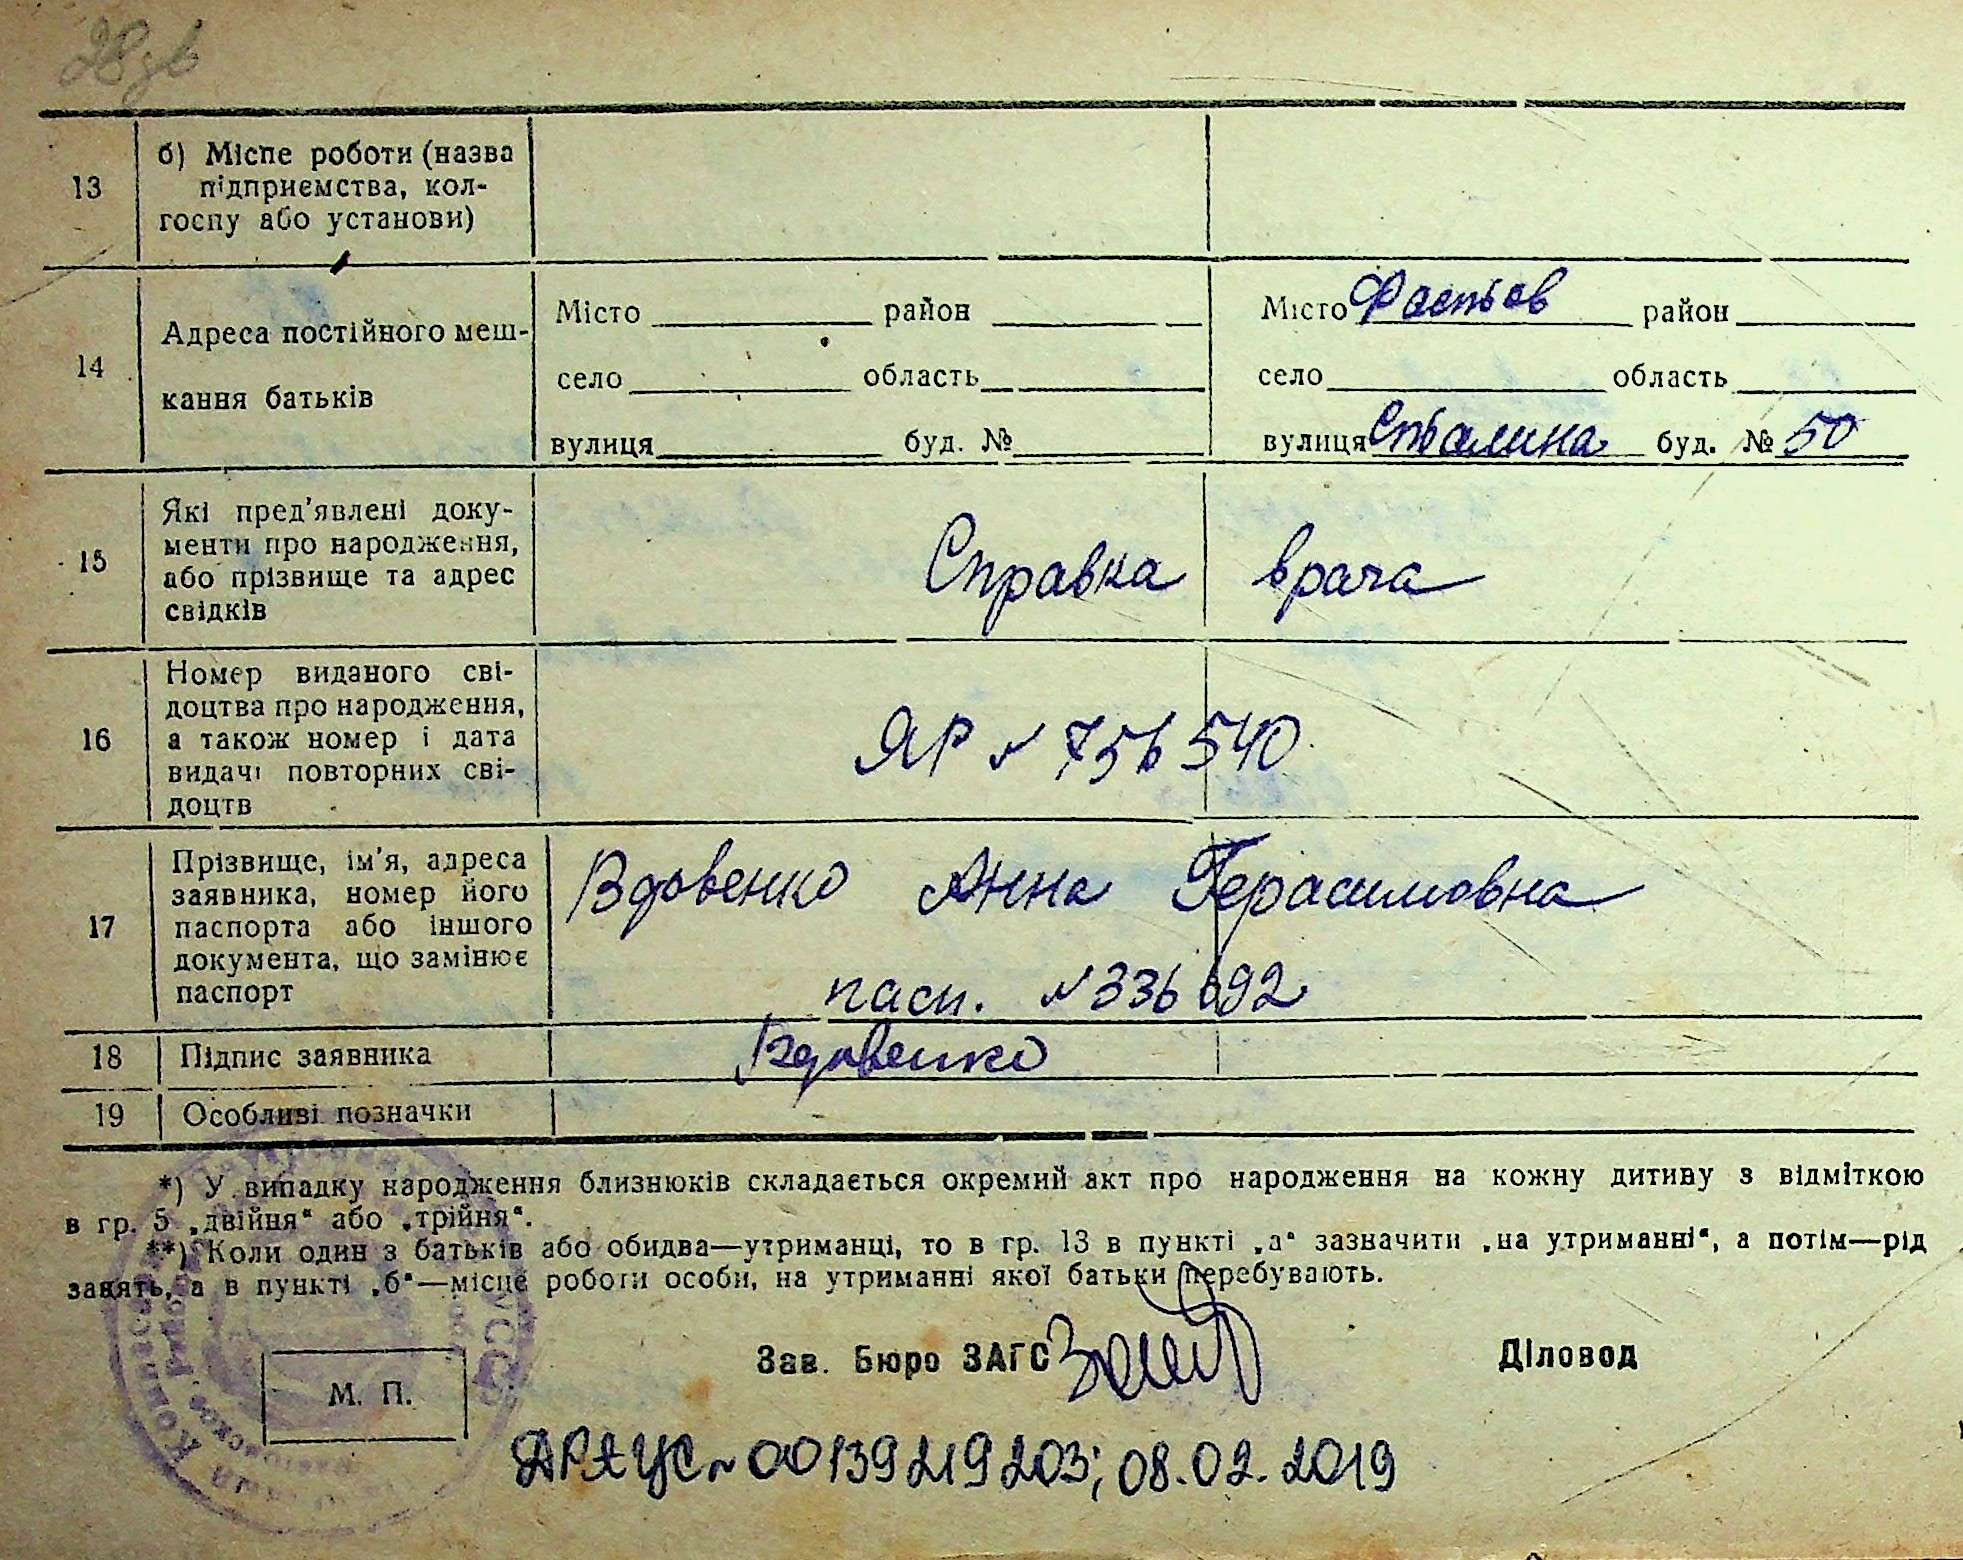 28 зв
13
б) Місце роботи (назва
підприємства, кол-
госпу або установи)
14
Адреса постійного меш-
кання батьків
Місто район
село область
вулиця буд. №
Місто Фастов район
село область
вулиця Сталина буд. № 50
15
Які пред'явлені доку-
менти про народження,
або прізвище та адрес
свідків
Справка врача
16
Номер виданого сві-
доцтва про народження,
а також номер і дата
видачі повторних сві-
доцтв
ЯР № 756540
17
Прізвище, ім'я, адреса
заявника, номер його
паспорта або іншого
документа, що замінює
паспорт
Вдовенко Анна Герасимовна
пасп. № 336692
18 Підпис заявника
Вдовенко
19 Особливі позначки
*) У випадку народження близнюків складається окремий акт про народження на кожну дитину з відміткою
в гр. 5 „двійня“ або „трійня“.
**) Коли один з батьків або обидва—утриманці, то в гр. 13 в пункті „а“ зазначити „на утриманні“, а потім—рід
занять, а в пункті „б“—місце роботи особи, на утриманні якої батьки перебувають.
Зав. Бюро ЗАГС
Діловод
М. П.
ДРАЦС № 00139219203; 08.02.2019